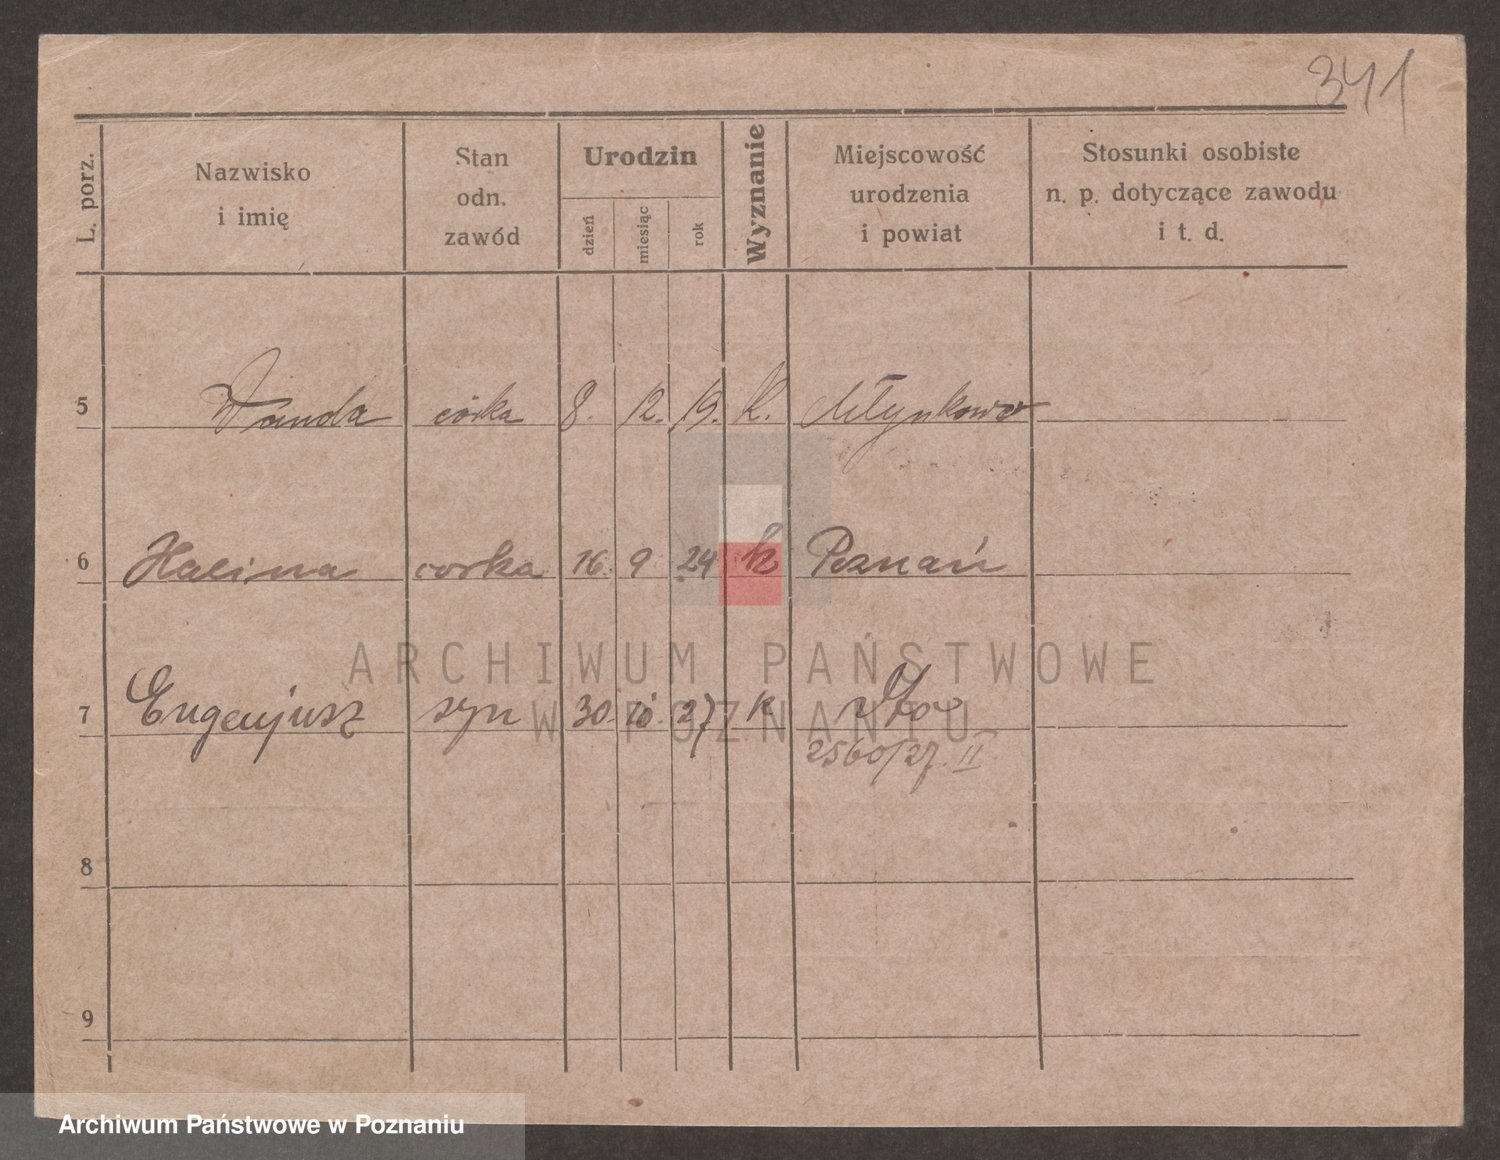 341
L. porz.
Nazwisko
i imię
Stan
odn.
zawód
Urodzin
dzień
miesiąc
rok
Wyznanie
Miejscowość
urodzenia
i powiat
Stosunki osobiste
n. p. dotyczące zawodu
i t. d.
5 Wanda córka 8. 12. 19. k. Młynkowo
6 Halina corka 16. 9 24 k Poznań
7 Eugenjusz syn 30. 10. 27 k
2560/27. II
8
9
ARCHIWUM PAŃSTWOWE
W POZNANIU
Archiwum Państwowe w Poznaniu